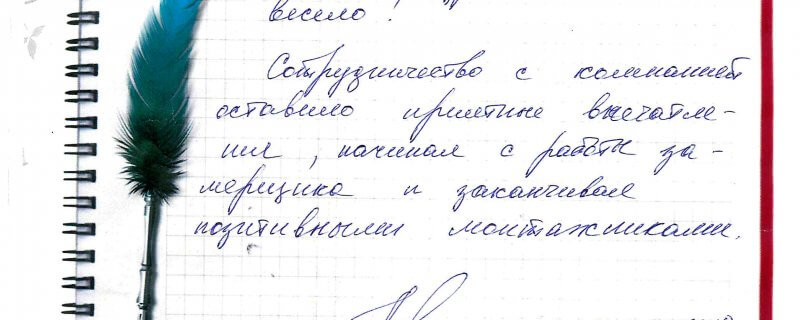 весело!
Сотрудничество с компанией
оставило приятные впечатле-
ния, начиная с работы за-
мерщика и заканчивая
позитивными монтажниками.